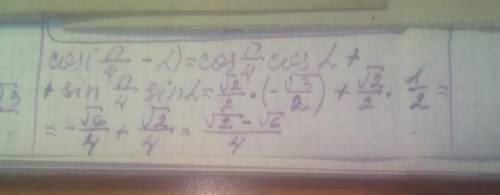 cos(π/4 - α) = cos π/4 cos α +
√3 + sin π/4 sin α = √2/2 · (-√3/2) + √2/2 · 1/2 =
= -√6/4 + √2/4 = (√2 - √6)/4